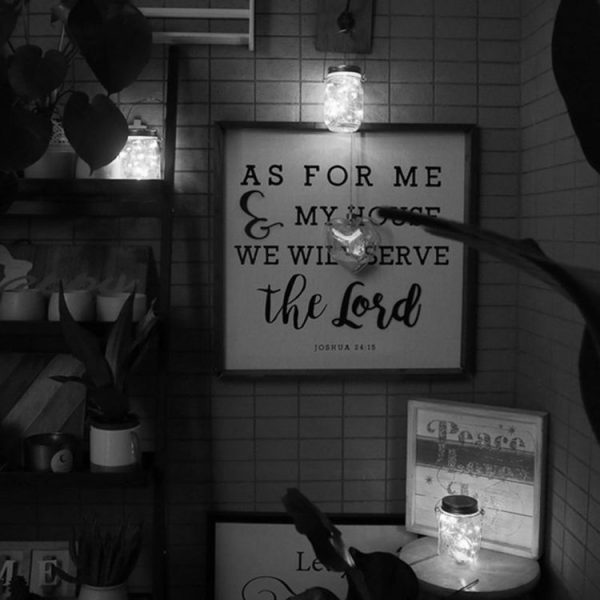 AS FOR ME
& MY HOUSE
WE WILL SERVE
the Lord
JOSHUA 24:15
Peace
ME